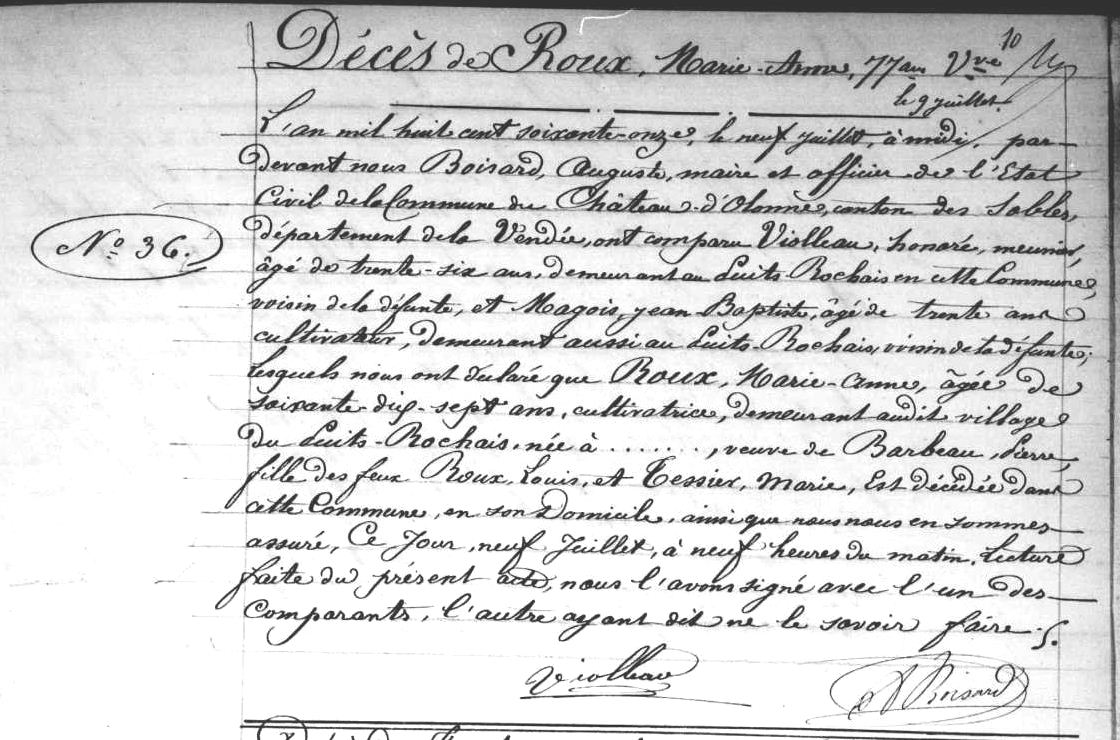 Décès de Roux, Marie-Anne, 77 ans Vve
10
le 9 juillet.
L'an mil huit cent soixante-onze, le neuf juillet, à midi, par-
devant nous Boisard, Auguste, maire et officier de l'Etat
Civil de la Commune du Château-d'Olonne, canton des Sables,
département de la Vendée, ont comparu Violleau, honoré, meunier,
N° 36.
âgé de trente-six ans, demeurant au Puits-Rochais en cette Commune,
voisin de la défunte, et Magois, jean-Baptiste, âgé de trente ans
cultivateur, demeurant aussi au Puits-Rochais, voisin de la défunte;
lesquels nous ont déclaré que Roux, Marie-Anne, âgée de
soixante-dix-sept ans, cultivatrice, demeurant audit village
du Puits-Rochais, née à ........, veuve de Barbeau, Pierre,
fille des feux Roux, Louis, et Tessier, Marie, Est décédée dans
cette Commune, en son Domicile, ainsi que nous nous en sommes
assuré, Ce Jour, neuf Juillet, à neuf heures du matin. Lecture
faite du présent acte, nous l'avons signé avec l'un des
Comparants, l'autre ayant dit ne le savoir faire.
Violleau
A Boisard